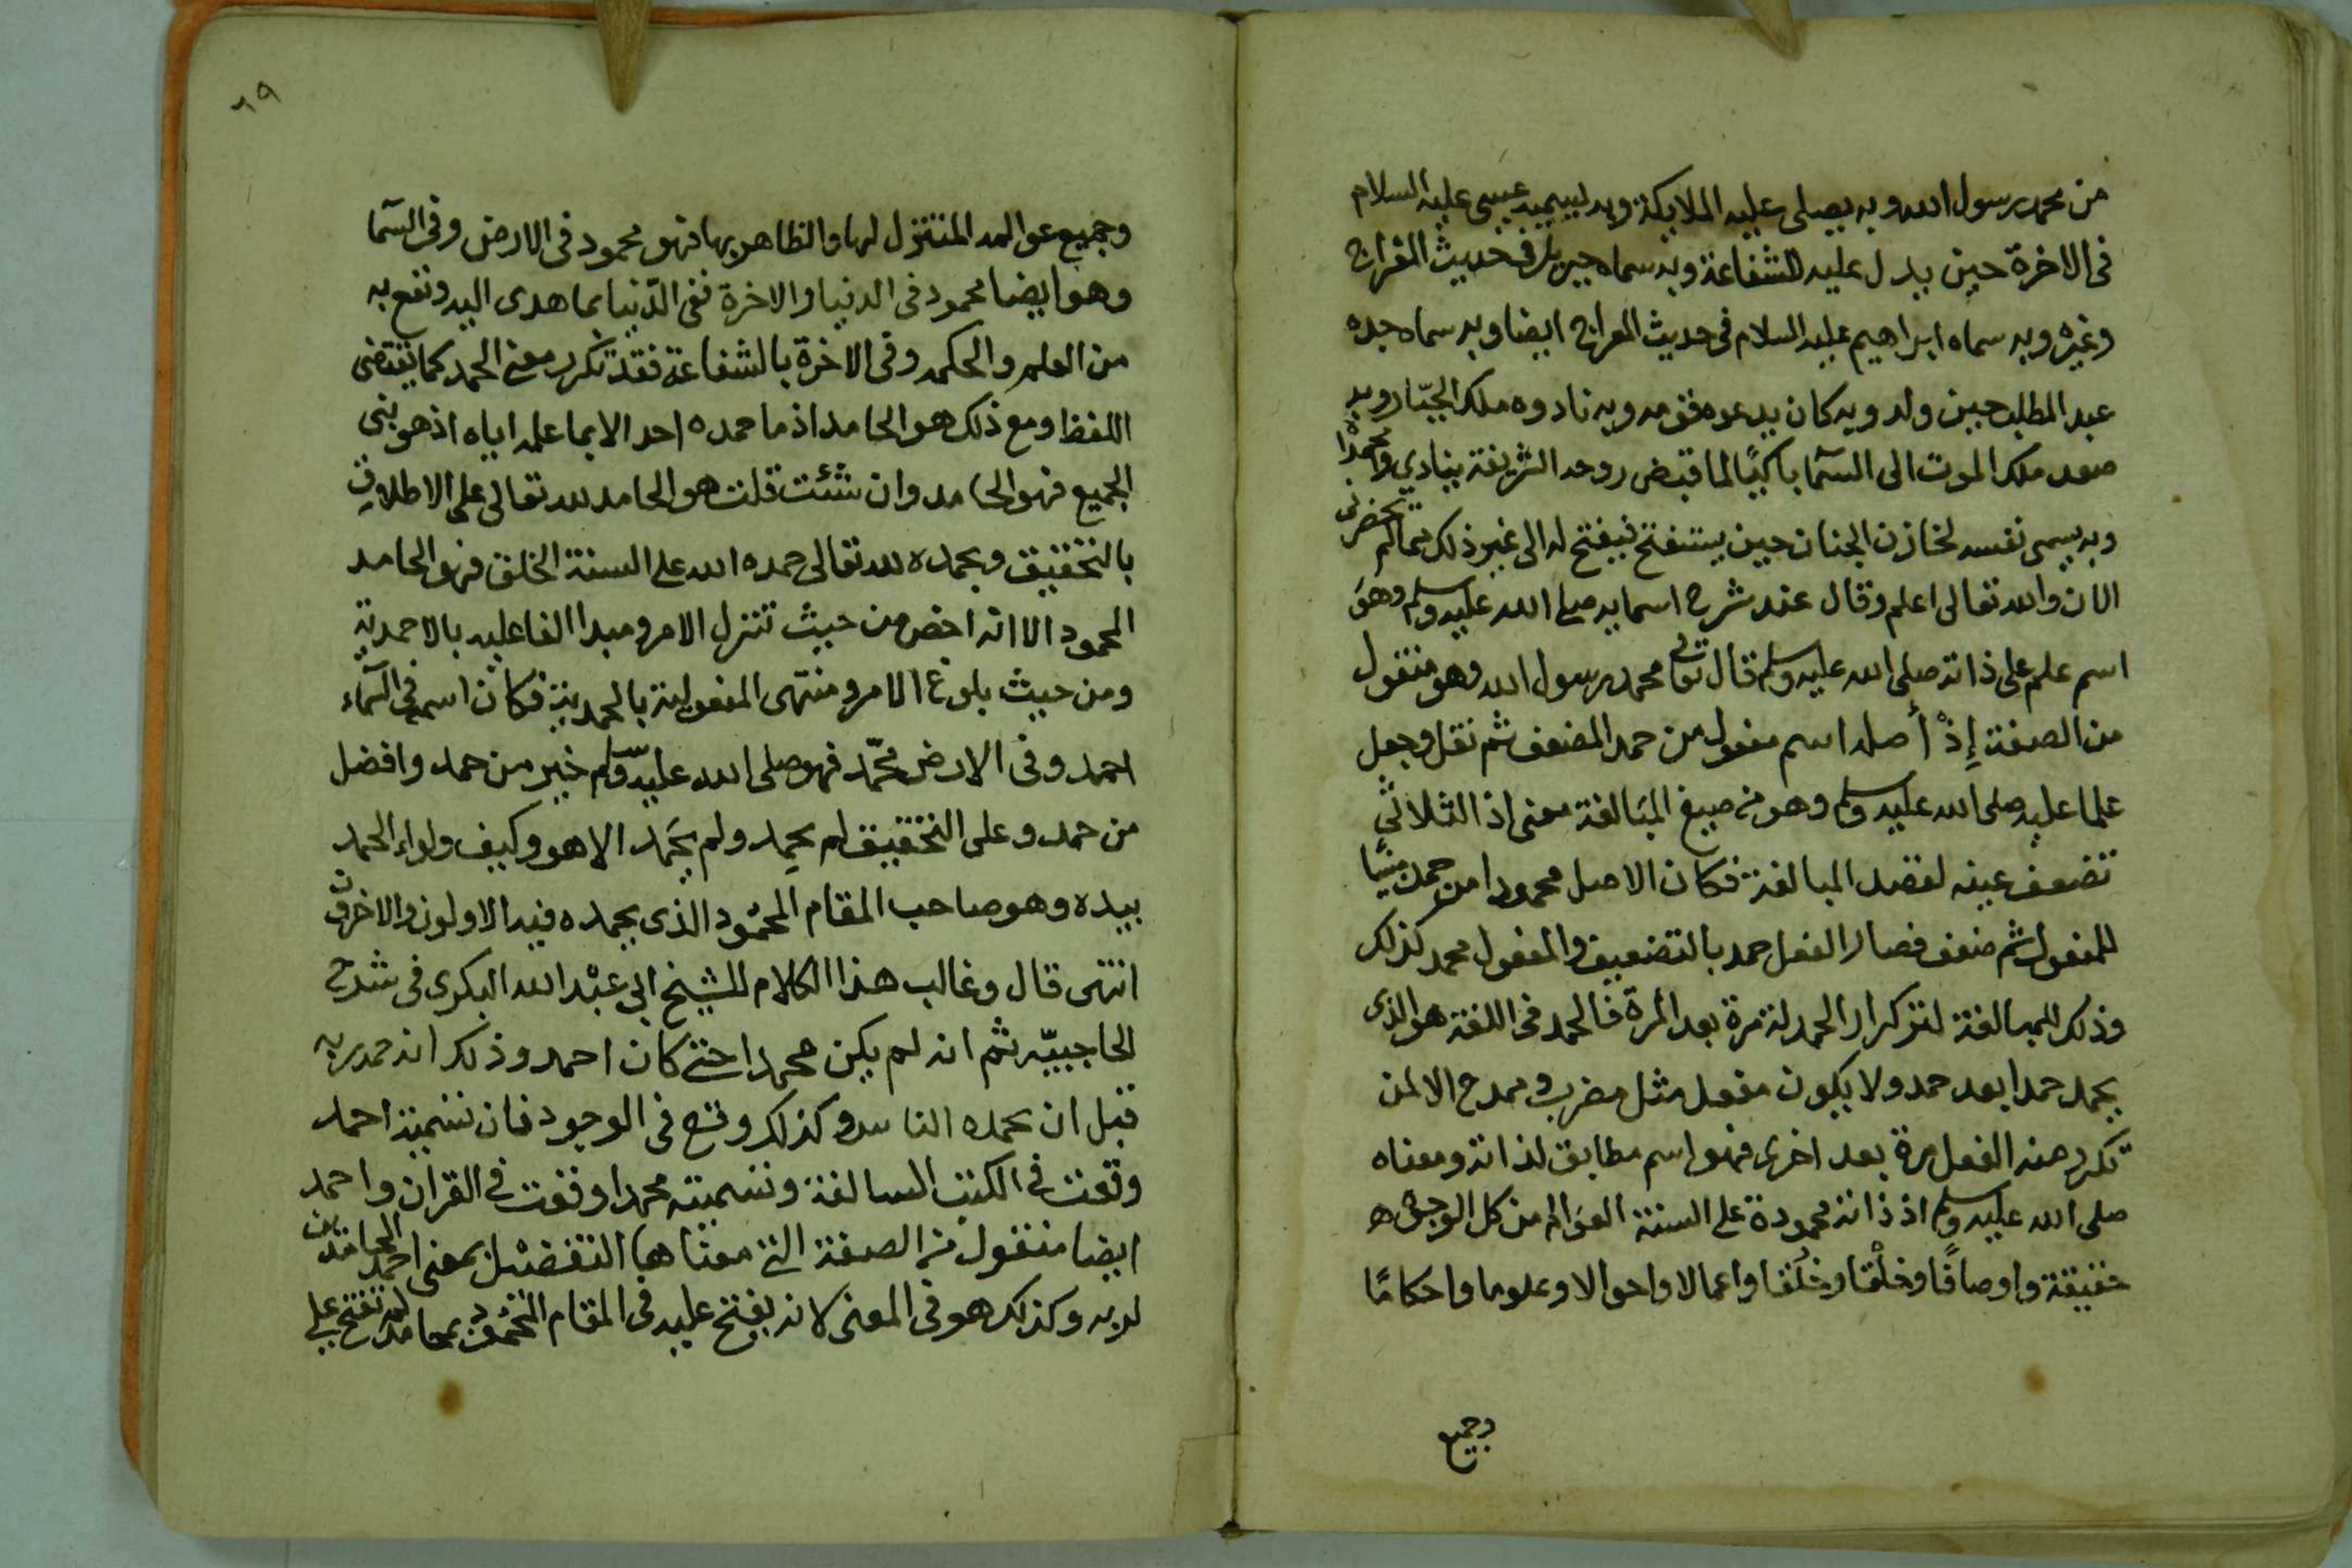 من محمد رسول الله وبه يصلى عليه الملايكة وبه يسميه عيسى عليه السلام
فى الاخرة حين يدل عليه للشفاعة وبه سماه جبريل فى حديث المعراج
وغيره وبه سماه ابراهيم عليه السلام فى حديث المعراج ايضا وبه سماه جده
عبد المطلب حين ولد وبه كان يدعوه قومه وبه ناداه ملك الجبّار وبه
صعد ملك الموت الى السّما باكيًا لما قبض روحه الشريفة ينادي وامحمداه
وبه يسمى نفسه لخازن الجنان حين يستفتح فيفتح له الى غير ذلك مما لم يحضرنى
الان والله تعالى اعلم وقال عند شرح اسمايه صلى الله عليه وسلم وهو
اسم علم على ذاته صلى الله عليه وسلم قال تعالى محمد رسول الله وهو منقول
من الصفة إذْ أصله اسم مفعول من حمد المضعف ثم نقل وجعل
علما عليه صلى الله عليه وسلم وهو من صيغ المبَالغة معنى اذ الثلاثي
تضعف عينه لقصد المبالغة فكان الاصل محمودا من حمد مبنيا
للمفعول ثم ضعف فصار الفعل حمد بالتضعيف والمفعول محمد كذلك
وذلك للمبالغة لتكرار الحمد له مرة بعد المرة فالحمد فى اللغة هو الذى
يحمد حمدا بعد حمد ولا يكون مفعل مثل مضرب وممدح الا لمن
تكرر منه الفعل مرة بعد اخرى فهو اسم مطابق لذاته ومعناه
صلى الله عليه وسلم اذ ذاته محمودة على السنة العوَالم من كل الوجوه
حقيقة واوصافًا وخلْقا وخلُقا واعمالا واحوالا وعلوما واحكامًا
وجميع
٦٩
وجميع عوالمه المتنزل لها والظاهر بها فهو محمود فى الارض وفى السّما
وهو ايضا محمود فى الدنيا والاخرة ففى الدّنيا بما هدى اليه ونفع به
من العلم والحكمه وفى الاخرة بالشفاعة فقد تكرر معنى الحمد كما يقتضى
اللفظ ومع ذلك هو الحامد اذ ما حمده احد الا بما علمه اياه اذ هو نبى
الجميع فهو الحامد وان شئت قلت هو الحامد لله تعالى على الاطلاق
بالتحقيق وبحمده لله تعالى حمده الله على السنة الخلق فهو الحامد
المحمود الا انه اخص من حيث تنزل الامر ومبدا الفاعليه بالاحمدية
ومن حيث بلوغ الامر ومنتهى المفعولية بالمحمدية فكان اسمه فى السّماء
احمد وفى الارض محمّد فهو صلى الله عليه وسلم خير من حمد وافضل
من حمد وعلى التحقيق لم يحمِد ولم يحَمد الا هو وكيف ولواء الحمد
بيده وهو صاحب المقام المحمُود الذى يحمده فيه الاولون والاخرون
انتهى قال وغالب هذا الكلام للشيخ ابى عبْد الله البكرى فى شرح
الحاجبيّه ثم انه لم يكن محمدا حتى كان احمد وذلك انه حمد ربه
قبل ان يحمده الناس وكذلك وقع فى الوجود فان تسميته احمد
وقعت فى الكتب السالفة وتسميته محمدا وقعت فى القران واحمد
ايضا منقول من الصفة التى معناها التفضيل بمعنى احمد الحامدين
لربه وكذلك هو فى المعنى لانه يفتح عليه فى المقام المحْمُود بمحامد لم تفتح على